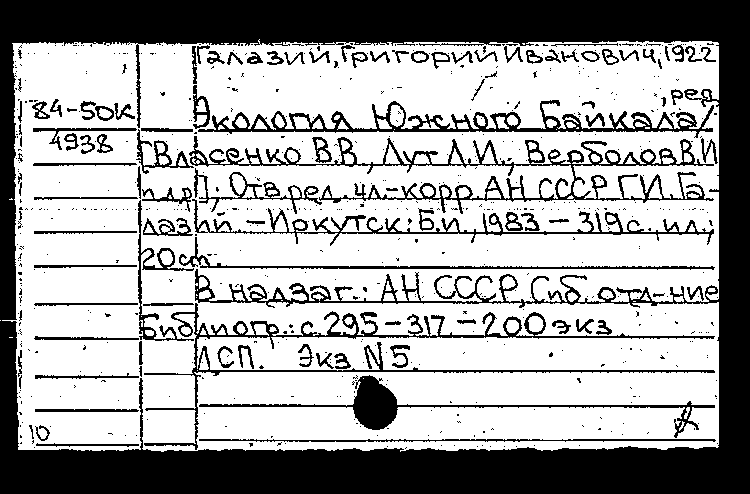 Галазий, Григорий Иванович, 1922
, ред.
84-50К
4938
Экология Южного Байкала/
[Власенко В.В., Лут Л.И., Верболов В.И
и др.]; Отв. ред. чл.-корр. АН СССР Г.И. Га-
лазий. – Иркутск: Б.и., 1983 – 319 с., ил.;
20 см.
В надзаг.: АН СССР, Сиб. отд-ние
Библиогр.: с. 295-317. – 200 экз.
Экз. N 5.
10